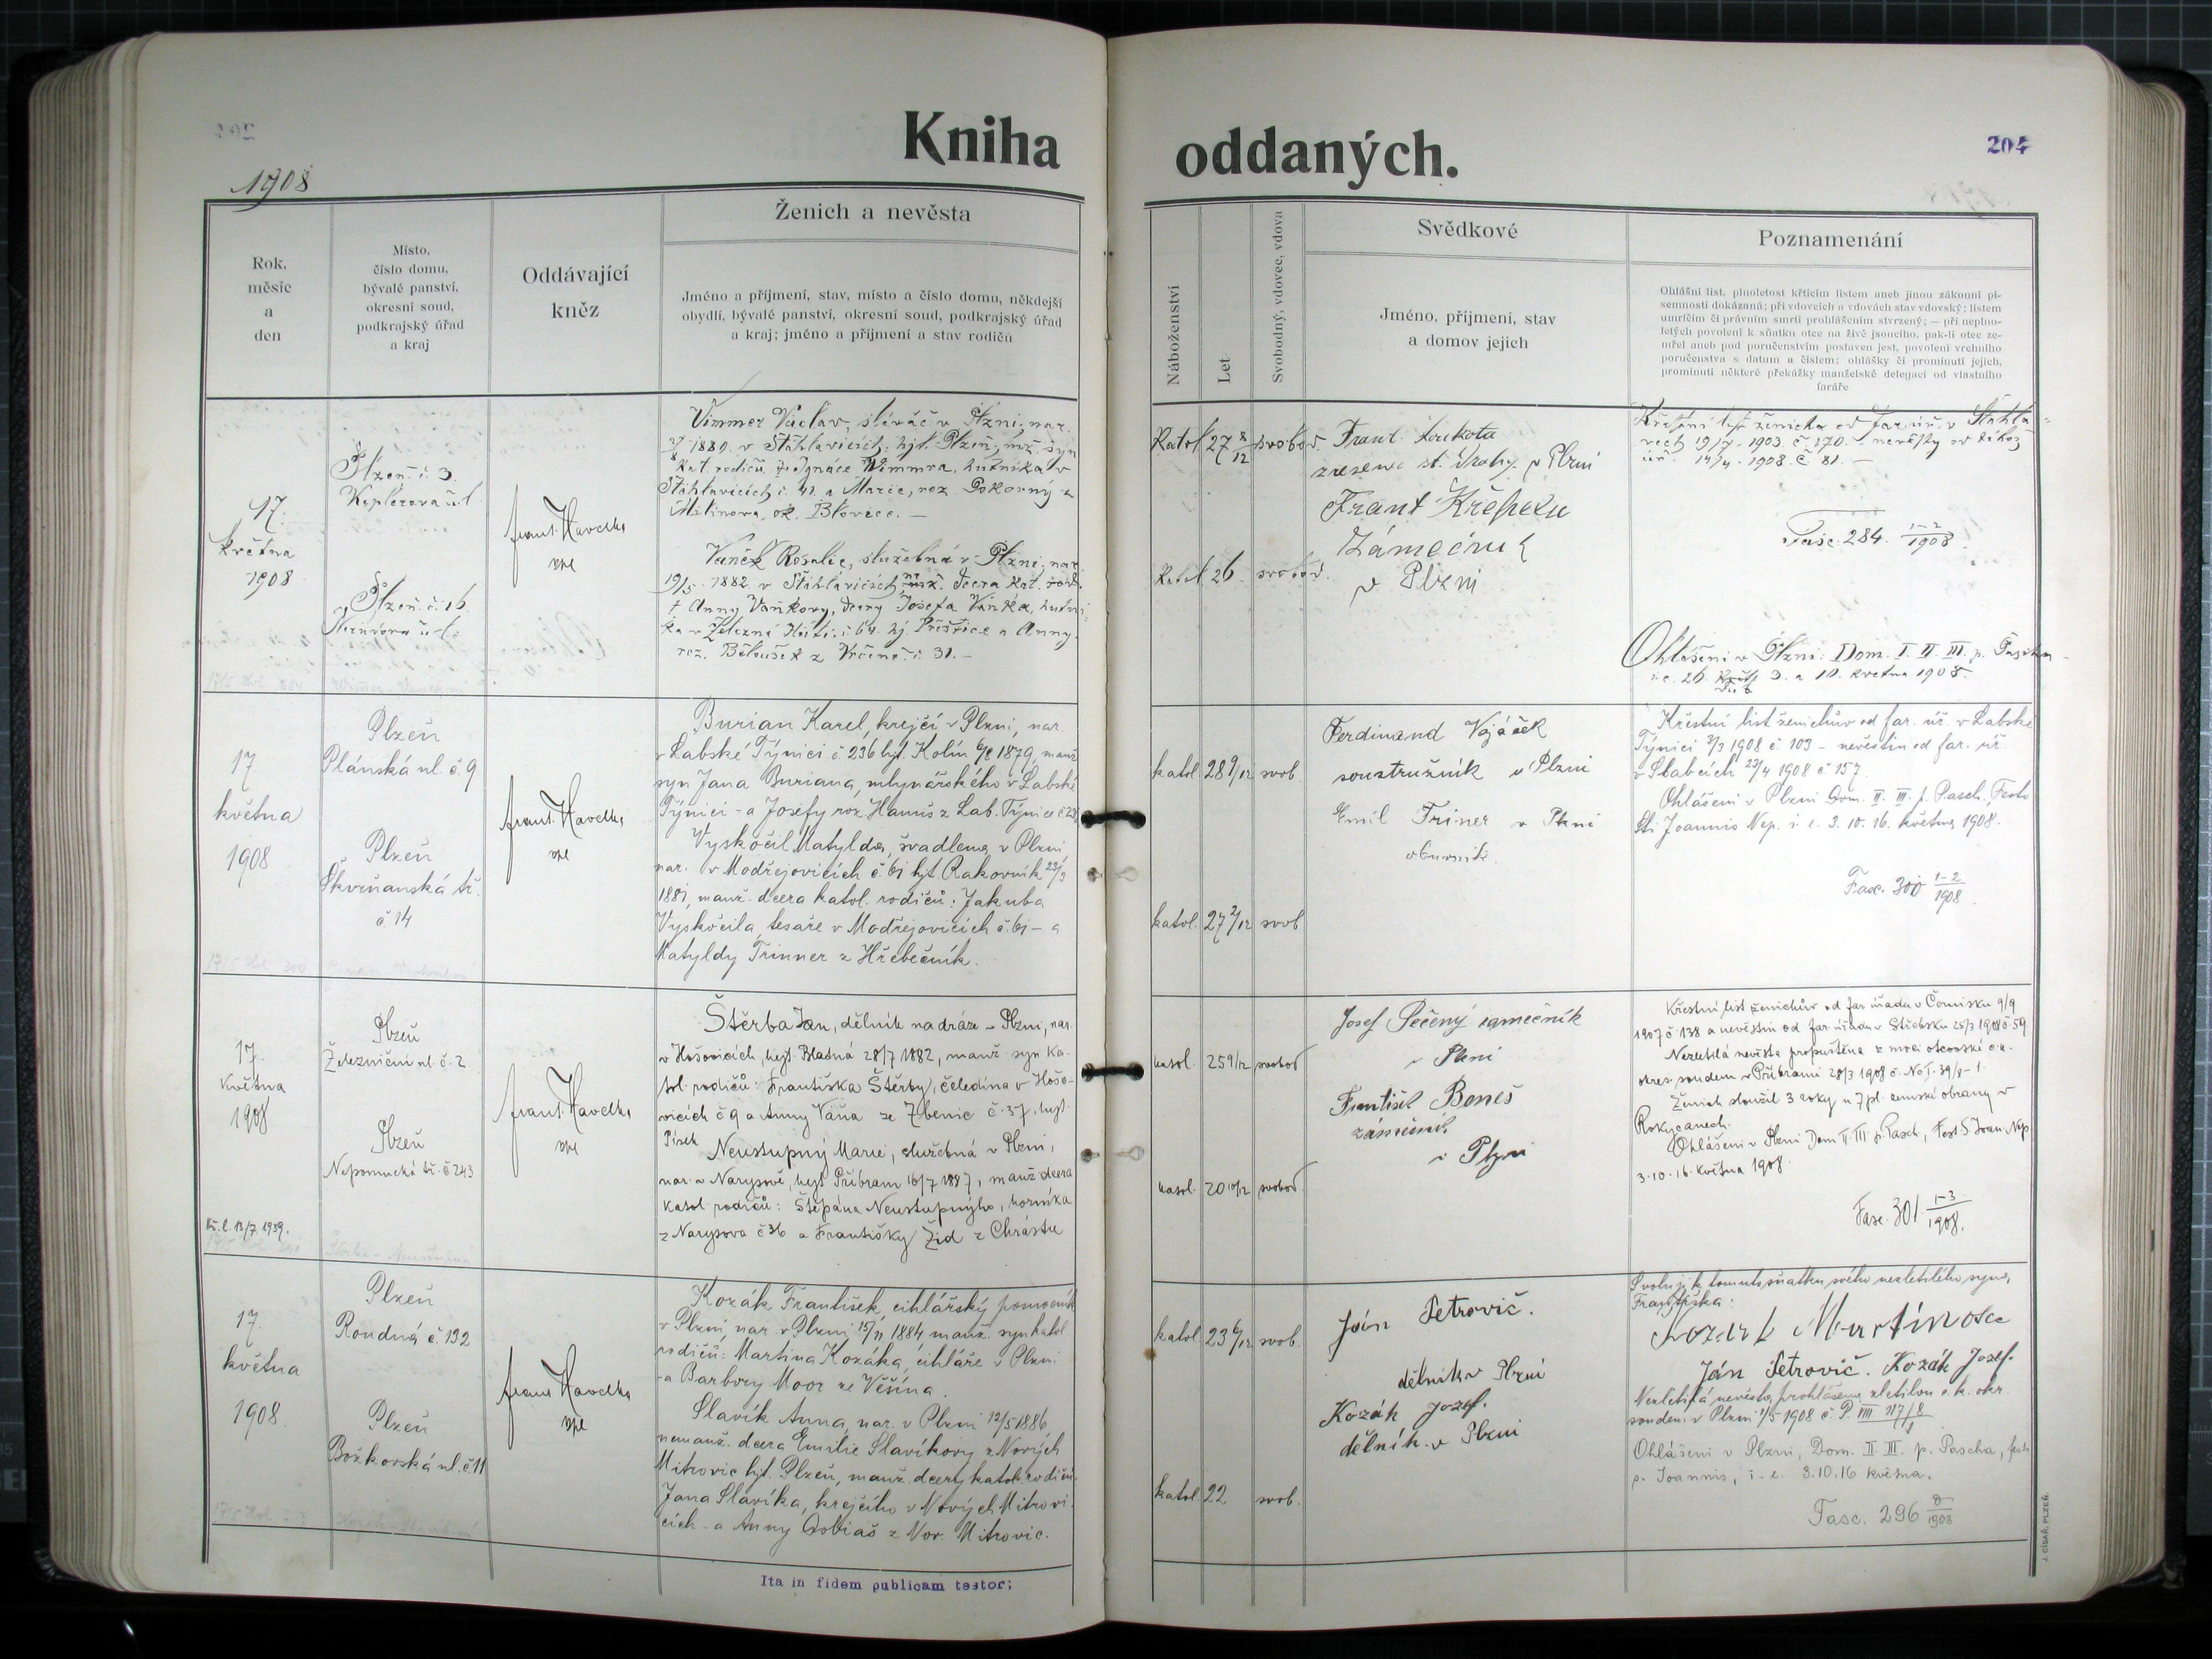 Kniha oddaných.
204
1908
Rok,
měsíc
a
den
Místo,
číslo domu,
bývalé panství,
okresní soud,
podkrajský úřad
a kraj
Oddávající
kněz
Ženich a nevěsta
Jméno a příjmení, stav, místo a číslo domu, někdejší
obydlí, bývalé panství, okresní soud, podkrajský úřad
a kraj; jméno a příjmení a stav rodičů
Náboženství
Let
Svobodný, vdovec, vdova
Svědkové
Jméno, příjmení, stav
a domov jejich
Poznamenání
Ohlášní list, plnoletost křticím listem aneb jinou zákonní pí-
semností dokázaná; při vdovcích a vdovách stav vdovský; listem
umrlčím či právním smrti prohlášením stvrzený; — při neplno-
letých povolení k sňatku otce na živě jsoucího, pak-li otec ze-
mřel aneb pod poručenstvím postaven jest, povolení vrchního
poručenstva s datum a číslem; ohlášky či prominutí jejich,
prominutí některé překážky manželské delegací od vlastního
faráře
17.
května
1908
Plzeň č. 3
Keplerova ul.
Plzeň č. 16
Frant. Havelka
Vimmer Václav, slévač v Plzni, nar.
1880 v Šťáhlavicích, hjt. Plzeň, mž. syn
kat. rodičů Ignáce Wimmra, hutníka v
Šťáhlavicích č. 41 a Marie, roz. Pokorný z
Milinova, ok. Blovice. —
Vaněk Rosalie, služebná v Plzni, nar.
19/5 1882 v Šťáhlavicích, dcera kat. rod.
† Anny Vaňkovy, dcery Josefa Vaňka, hutní-
ka v Železné Huti č. 64 hj. Přeštice a Anny
roz. Běloušek z Vrčeně č. 31. —
Katol 27 8/12 svobod.
Katol 26 svobod.
Frant. Loukota
zřízenec st. dráhy v Plzni
Frant Křepelu
Zámečník
v Plzni
Křestní list ženicha od far. úř. v Šťáhla-
vech 19/7 1903 č. 170. – nevěsty od téhož
úř. 14/4 1908 č. 81. —
Fasc. 284 1-2/1908
Ohlášeni v Plzni: Dom. I. II. III. p. Pascha
i. e. 26. 3. a 10. května 1908.
17
května
1908
Plzeň
Plánská ul. č. 9
Plzeň
Škvrňanská tř.
č. 14
Frant. Havelka
Burian Karel, krejčí v Plzni, nar.
v Labské Týnici č. 236 hjt. Kolín 6/8 1879, manž.
syn Jana Buriana, mlynářského v Labské
Týnici - a Josefy roz. Hanuš z Lab. Týnice
Vyskočil Matylda, švadlena v Plzni
nar. v Modřejovicích č. 61 hjt. Rakovník 23/3
1881, manž. dcera katol. rodičů: Jakuba
Vyskočila, tesaře v Modřejovicích č. 61 - a
Matyldy Trinner z Hřebečník.
katol. 28 9/12 svob.
katol. 27 2/12 svob
Ferdinand Vojáček
soustružník v Plzni
Emil Friner v Plzni
obuvník.
Křestní list ženichův od far. úř. v Labské
Týnici 3/3 1908 č. 103 - nevěstin od far. úř.
v Slabcích 23/4 1908 č. 157.
Ohlášeni v Plzni Dom. II. III. p. Pasch. Festo
St. Joannis Nep. i. e. 3. 10. 16. května 1908.
Fasc. 300 1-2/1908
17.
května
1908
Plzeň
Železniční ul. č. 2
Plzeň
Nepomucká tř. č. 243
13/7 1939.
Frant. Havelka
Štěrba Jan, dělník na dráze v Plzni, nar.
v Hošovicích, hejt. Blatná 28/7 1882, manž. syn ka-
tol. rodičů: Františka Štěrby, čeledína v Hošo-
vicích č. 9 a Anny Váňa ze Zbenic č. 37, hejt.
Písek
Neustupný Marie, služebná v Plzni,
nar. v Narysově, hejt. Příbram 16/7 1887, manž. dcera
katol. rodičů: Štěpána Neustupného, horníka
z Narysova č. 36 a Františky Žid z Chrástu
katol. 25 9/12 svobod
katol. 20 10/12 svobod
Josef Pečený zámečník
v Plzni
František Beneš
zámečník
v Plzni
1907 č. 138 a nevěstin od far. úřadu v Střebsku 25/3 1908 č. 59.
Nezletilá nevěsta propuštěna z moci otcovské c. k.
okres. soudem v Příbrami 28/3 1908 č. Nc I. 39/8 - 1.
Ženich sloužil 3 roky u 7 pl. zemské obrany v
Rokycanech.
Ohlášeni v Plzni Dom II. III. p. Pasch, Fest. S. Joan. Nep.
3. 10. 16. května 1908.
Fasc. 301 1-3/1908.
17.
května
1908
Plzeň
Roudná č. 132
Plzeň
Božkovská ul. č. 11
Frant. Havelka
Kozák František, cihlářský pomocník
v Plzni, nar. v Plzni 15/11 1884 manž. syn katol.
rodičů: Martina Kozáka, cihláře v Plzni
- a Barbory Moor ze Věšína.
Slavík Anna, nar. v Plzni 12/5 1886
nemanž. dcera Emilie Slavíkovy z Nových
Mitrovic hjt. Plzeň, manž. dcery katol. rodičů
Jana Slavíka, krejčího v Nových Mitrovi-
cích - a Anny Dobiaš z Nov. Mitrovic.
katol. 23 6/12 svob.
katol. 22 svob.
Ján Petrovič.
dělník v Plzni
Kozák Jozef.
dělník v Plzni
Svoluji k tomuto sňatku svého nezletilého syna,
Františka:
Kozák Martin otec
Ján Petrovič. Kozák Jozef.
Nezletilá nevěsta prohlášena zletilou c. k. okr.
soudem v Plzni 1/5 1908 č. P. VIII 117/8
Ohlášeni v Plzni, Dom. II. III. p. Pascha, festo
s. Joannis, i. e. 3. 10. 16 května.
Fasc. 296
1908
Ita in fidem publicam testor;
J. CÍSAŘ, PLZEŇ.